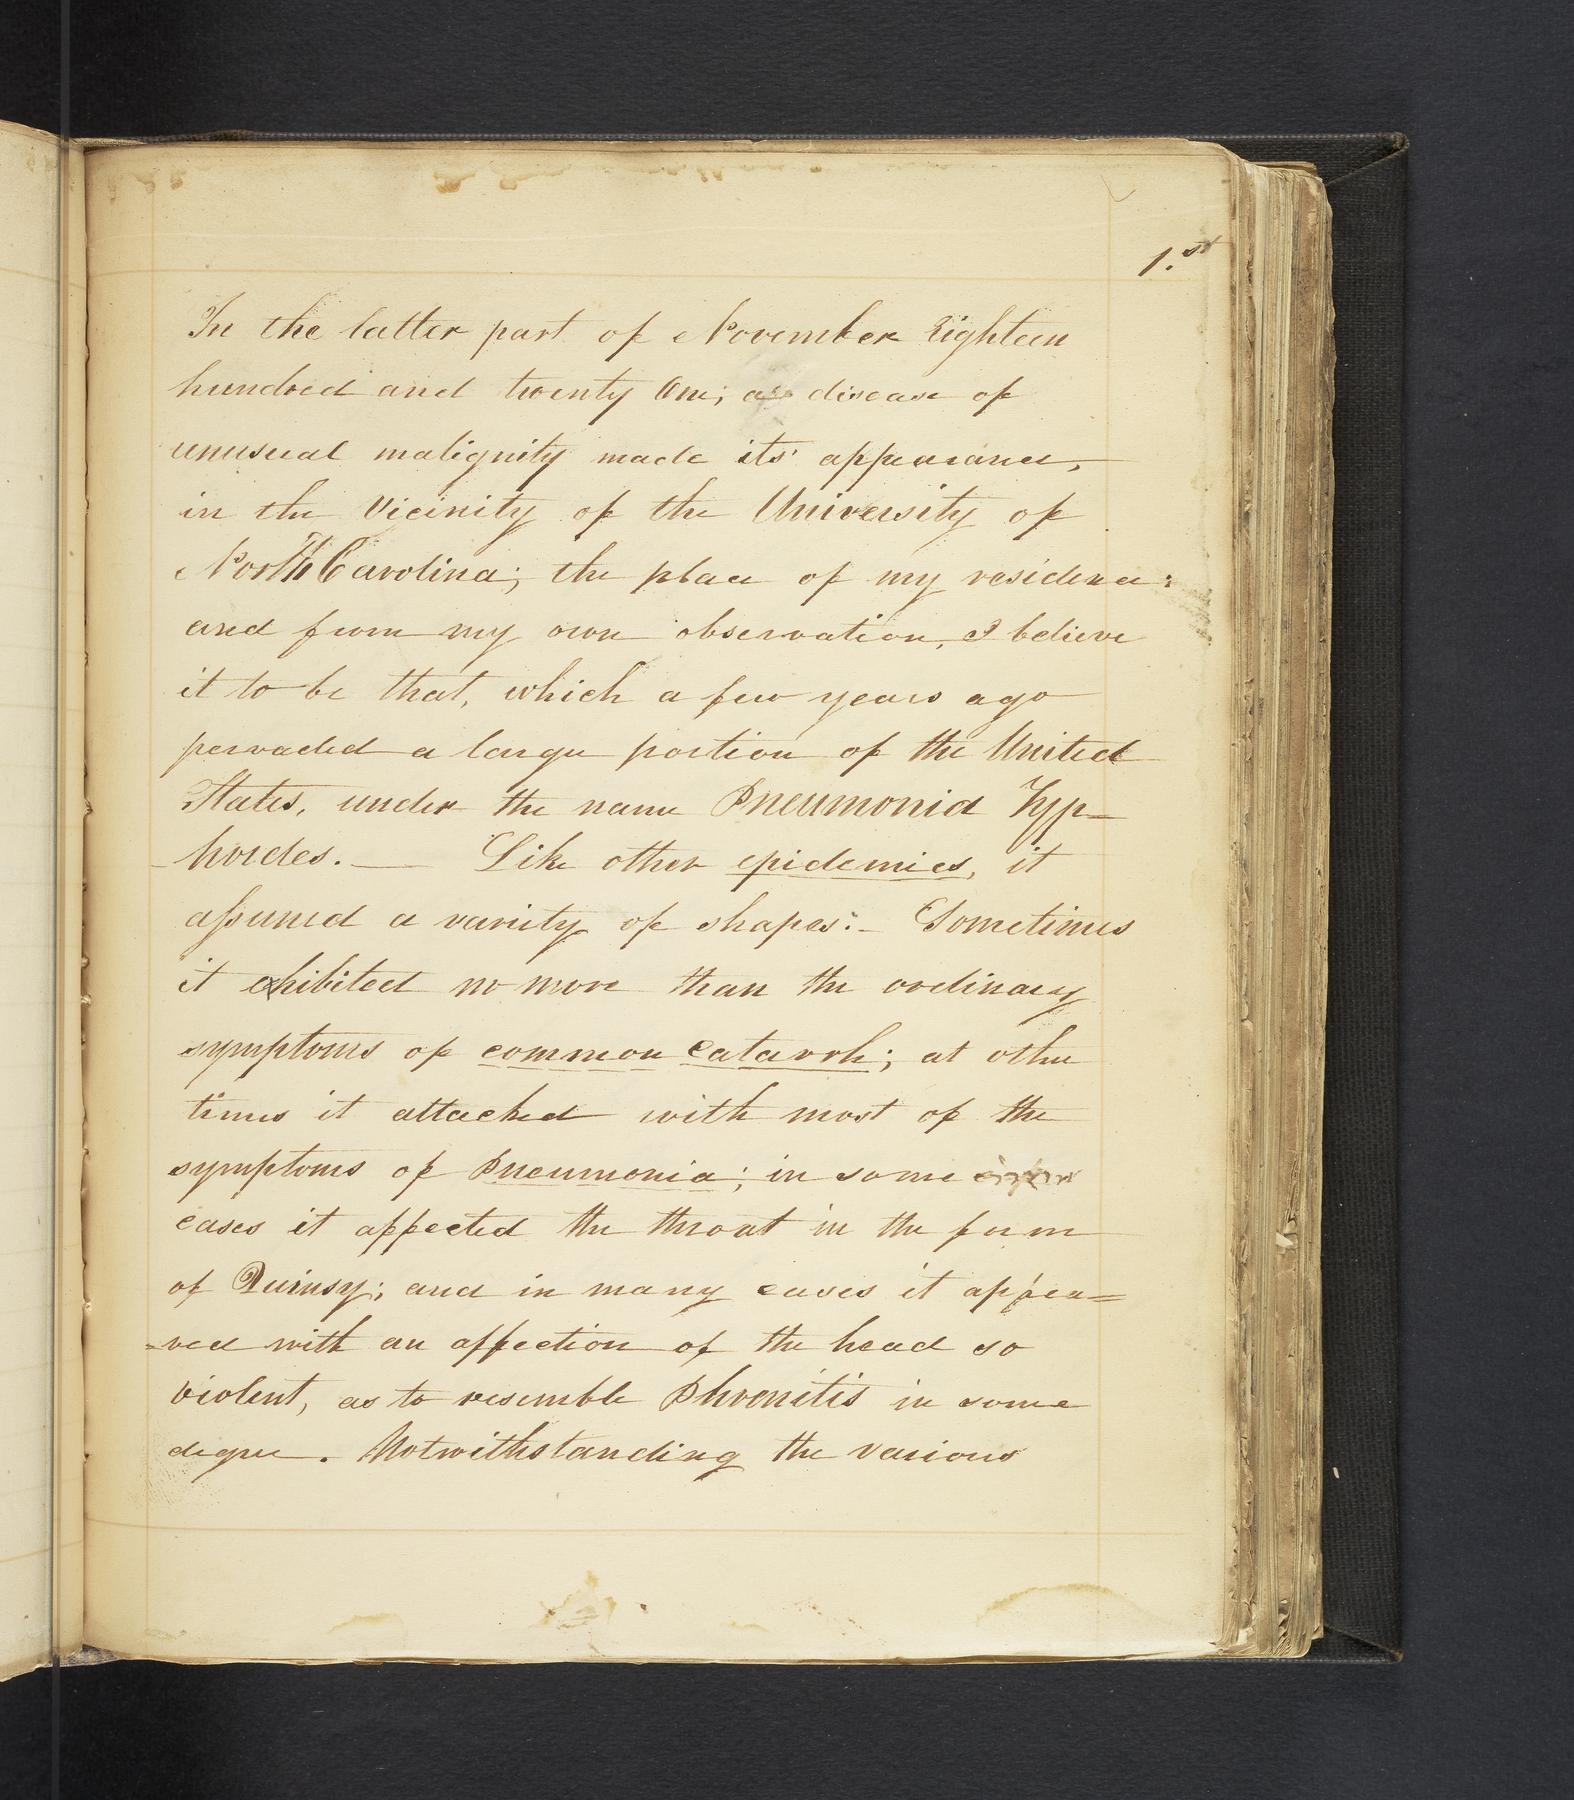 1.st
In the latter part of November Eighteen
hundred and twenty One; a disease of
unusual malignity made its appearance,
in the Vicinity of the University of
North Carolina; the place of my residence:
and from my own observation, I believe
it to be that, which a few years ago
pervaded a large portion of the United
States, under the name Pneumonia Typ-
hoides. — Like other epidemics, it
assumed a variety of shapes:- Sometimes
it exhibited no more than the ordinary
symptoms of common Catarrh; at other
times it attacked with most of the
symptoms of Pneumonia; in some
cases it affected the throat in the form
of Quinsy; and in many cases it appea=
=red with an affection of the head so
violent, as to resemble Phrenitis in some
degree. Notwithstanding the various